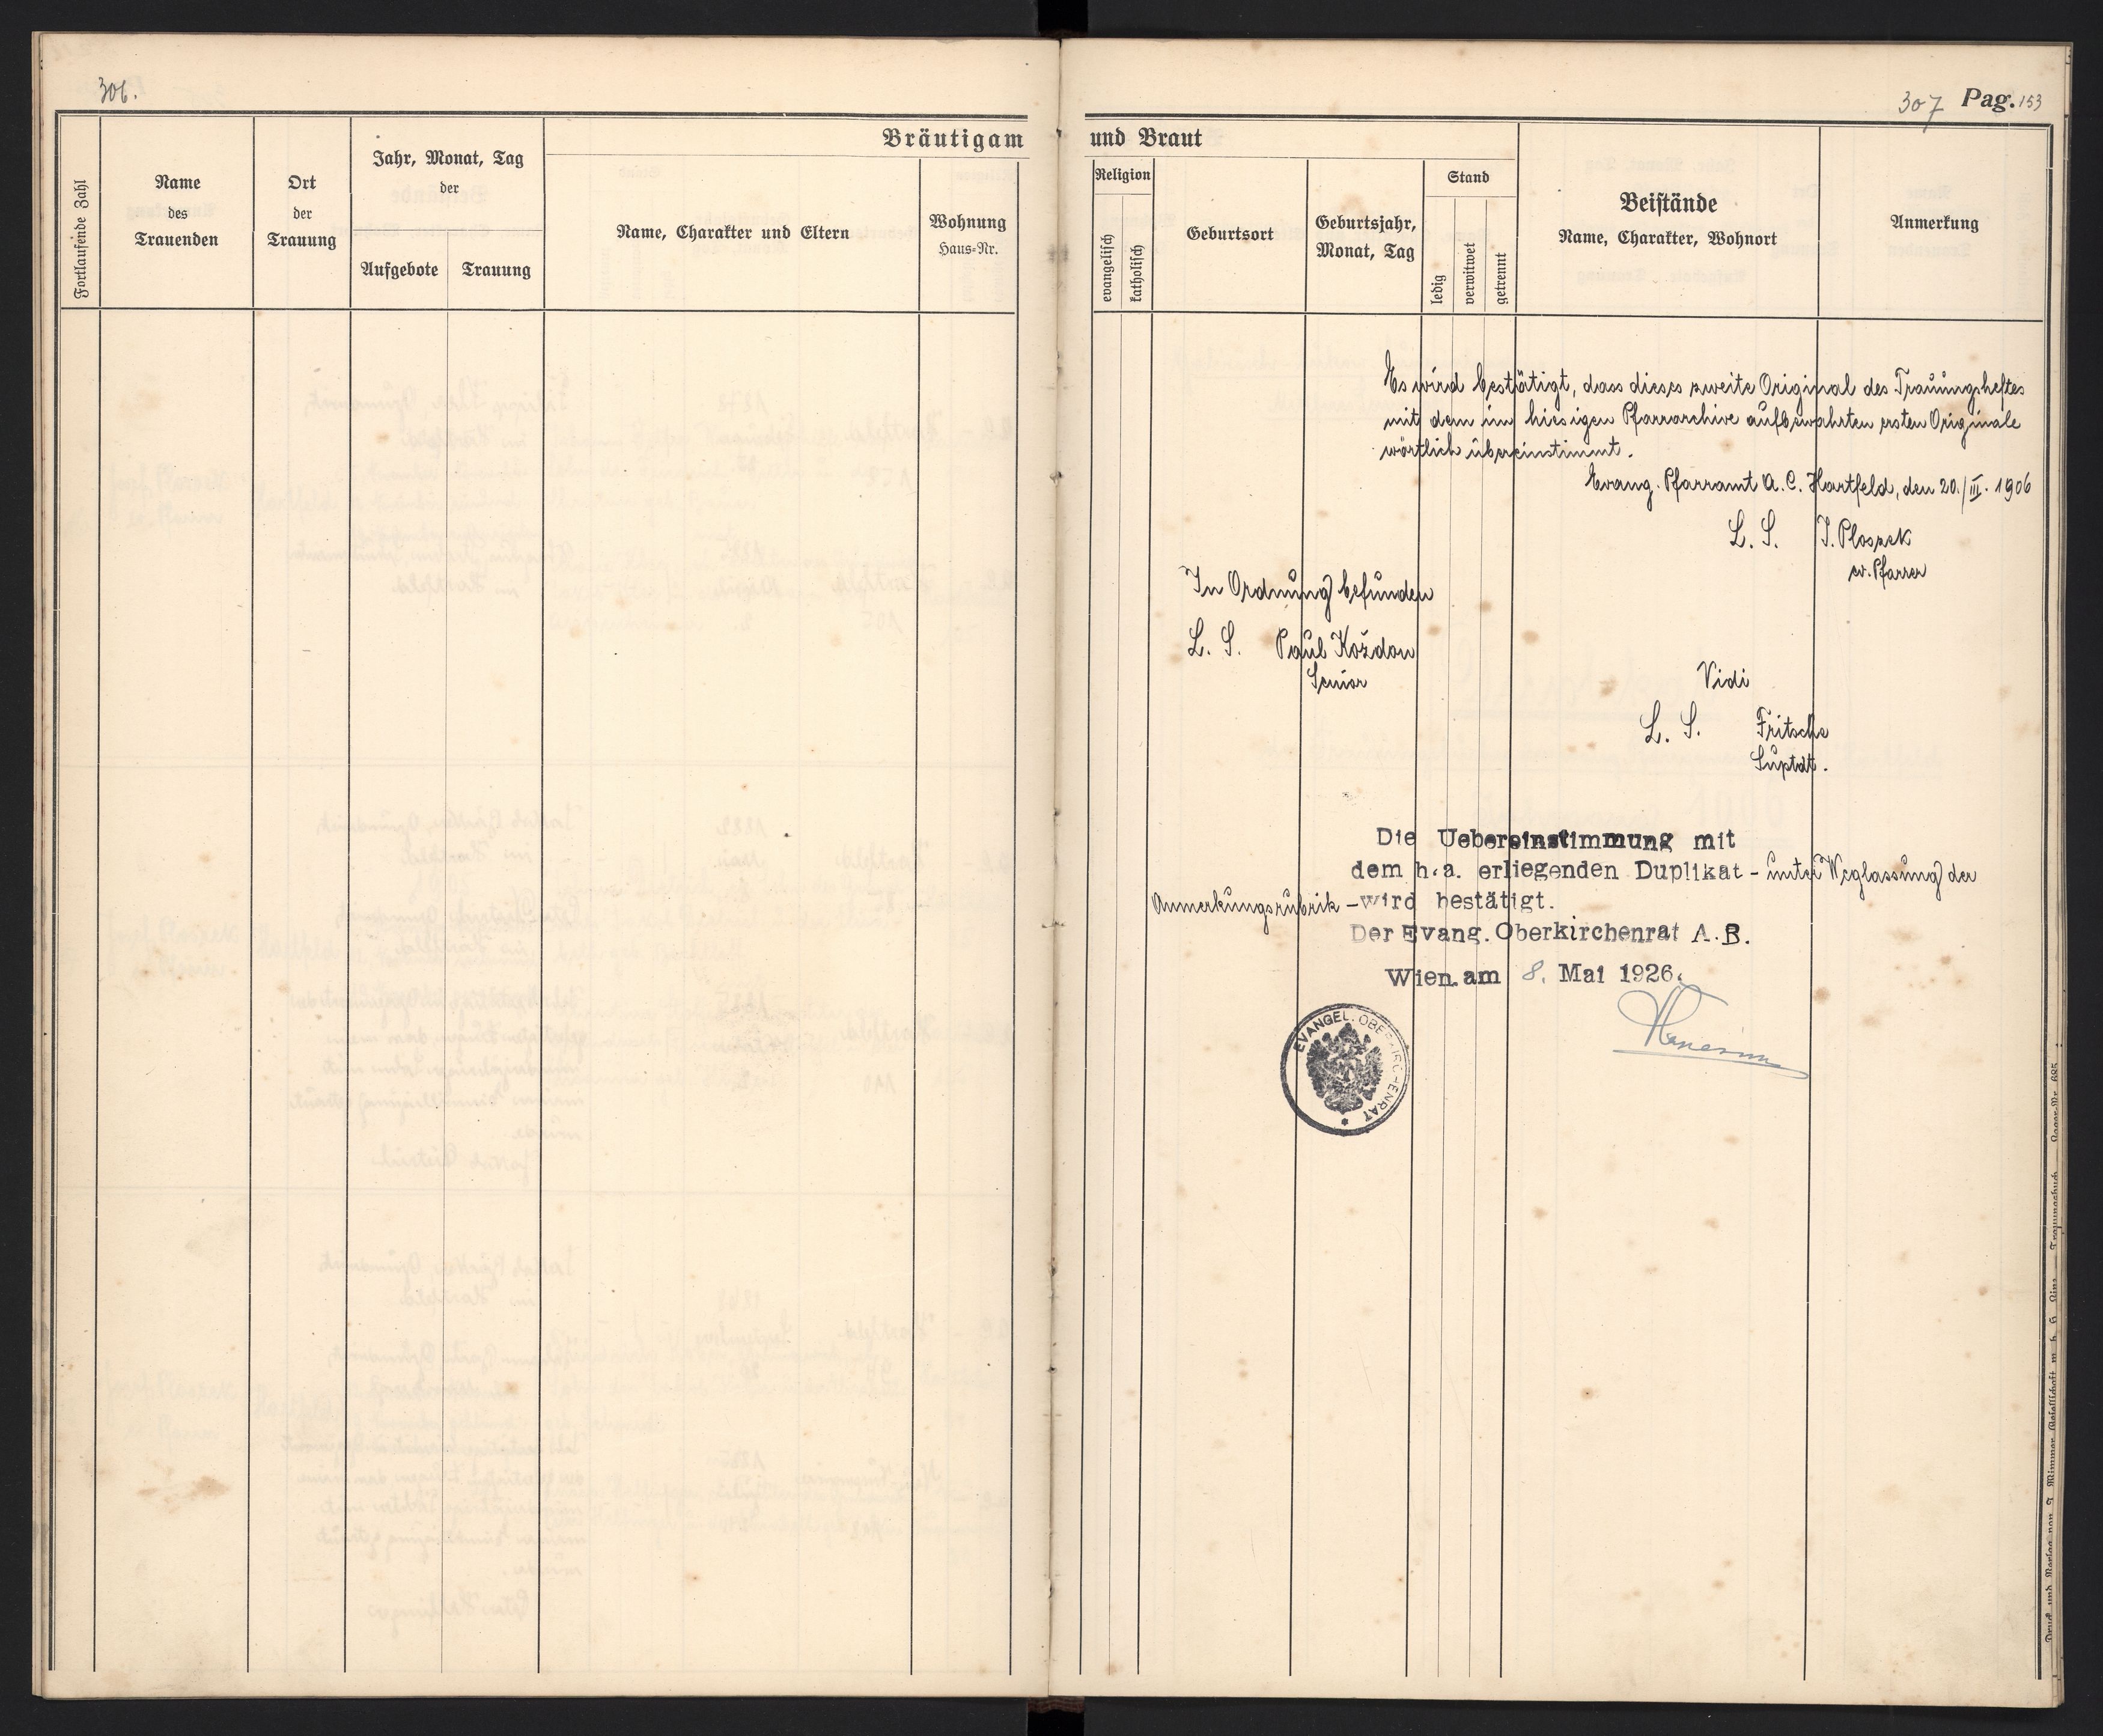 306.
307 Pag. 153
Bräutigam und Braut
Fortlaufende Zahl
Name
des
Trauenden
Ort
der
Trauung
Jahr, Monat, Tag
der
Aufgebote
Trauung
Name, Charakter und Eltern
Wohnung
Haus-Nr.
Religion
evangelisch
katholisch
Geburtsort
Geburtsjahr,
Monat, Tag
Stand
ledig
verwitwet
getrennt
Beistände
Name, Charakter, Wohnort
Anmerkung
Es wird bestätigt, dass dieses zweite Original des Trauungsheftes
mit dem im hiesigen Pfarrarchive aufbewahrten ersten Originale
wörtlich übereinstimmt.
Evang. Pfarramt A. C. Hartfeld, den 20./III. 1906
L. S. J. Ploszek
ev. Pfarrer
In Ordnung befunden
L. S. Paul Koždon
Senior
Vidi
L. S. Fritsche
Suptdt.
Die Uebereinstimmung mit
dem h.a. erliegenden Duplikat - unter Weglassung der
Anmerkungsrubrik - wird bestätigt.
Der Evang. Oberkirchenrat A. B.
Wien am 8. Mai 1926.
EVANGEL. OBERKIRCHENRAT